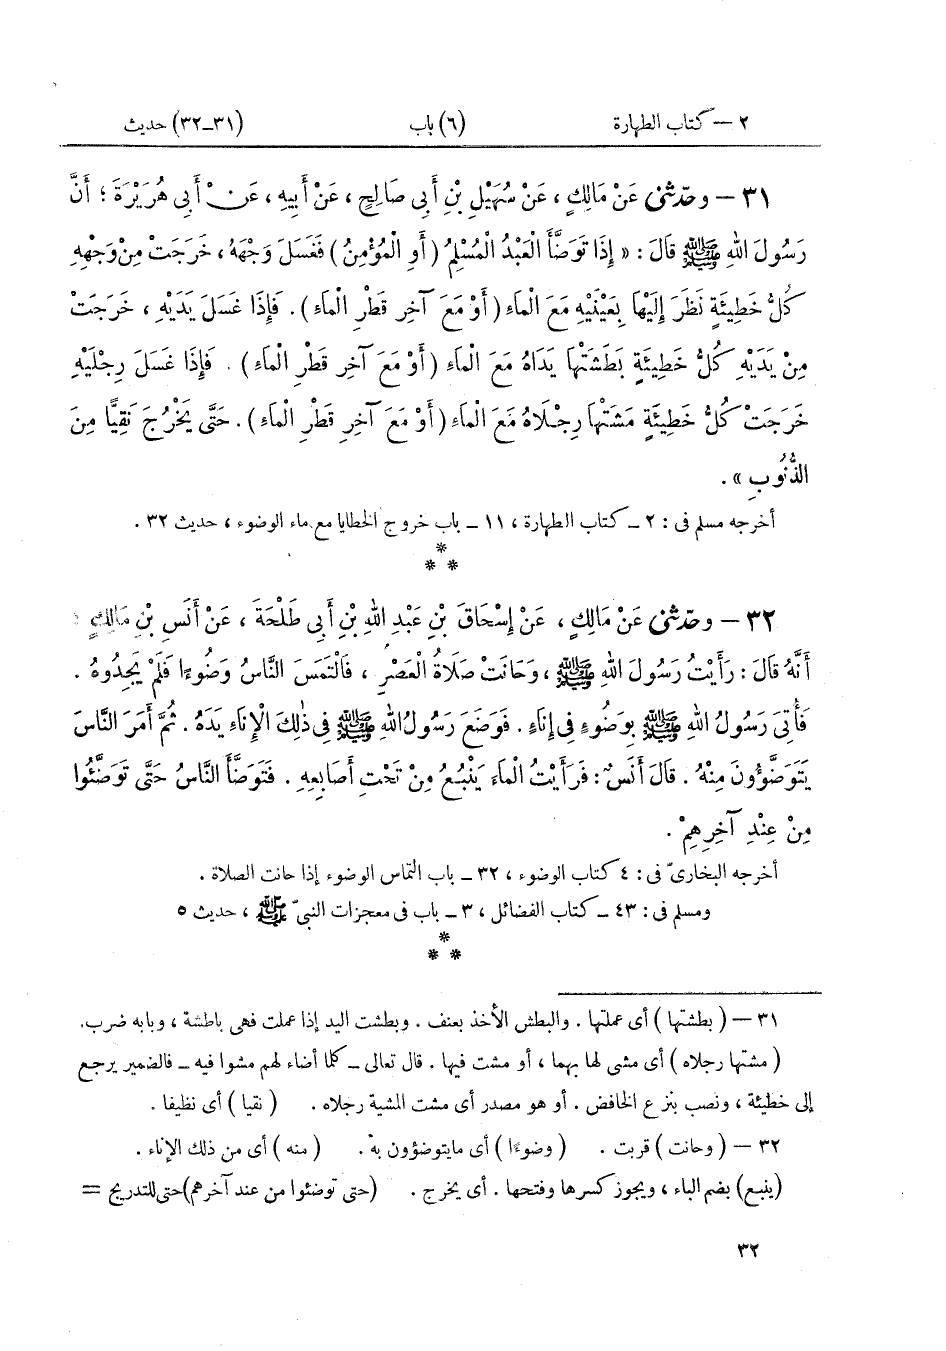 ٢ – كتاب الطهارة (٦) باب (٣١-٣٢) حديث
٣١ – وحدّثنى عَنْ مَالِكٍ ، عَنْ سُهَيْلِ بْنِ أَبِى صَالِحٍ ، عَنْ أَبِيهِ ، عَنْ أَبِى هُرَيْرَةَ ؛ أَنَّ
رَسُولَ اللهِ ﷺ قَالَ : « إِذَا تَوَضَّأَ الْعَبْدُ الْمُسْلِمُ ( أَوِ الْمُؤْمِنُ ) فَغَسَلَ وَجْهَهُ ، خَرَجَتْ مِنْ وَجْهِهِ
كُلُّ خَطِيئَةٍ نَظَرَ إِلَيْهَا بِعَيْنَيْهِ مَعَ الْمَاءِ ( أَوْ مَعَ آخِرِ قَطْرِ الْمَاءِ ) . فَإِذَا غَسَلَ يَدَيْهِ ، خَرَجَتْ
مِنْ يَدَيْهِ كُلُّ خَطِيئَةٍ بَطَشَتْهَا يَدَاهُ مَعَ الْمَاءِ ( أَوْ مَعَ آخِرِ قَطْرِ الْمَاءِ ) . فَإِذَا غَسَلَ رِجْلَيْهِ
خَرَجَتْ كُلُّ خَطِيئَةٍ مَشَتْهَا رِجْلَاهُ مَعَ الْمَاءِ ( أَوْ مَعَ آخِرِ قَطْرِ الْمَاءِ ) . حَتَّى يَخْرُجَ نَقِيًّا مِنَ
الذُّنُوبِ » .
أخرجه مسلم فى : ٢ ــ كتاب الطهارة ، ١١ ــ باب خروج الخطايا مع ماء الوضوء ، حديث ٣٢ .
*
* *
٣٢ – وحدّثنى عَنْ مَالِكٍ ، عَنْ إِسْحَاقَ بْنِ عَبْدِ اللهِ بْنِ أَبِى طَلْحَةَ ، عَنْ أَنَسِ بْنِ مَالِكٍ ؛
أَنَّهُ قَالَ : رَأَيْتُ رَسُولَ اللهِ ﷺ ، وَحَانَتْ صَلَاةُ الْعَصْرِ ، فَالْتَمَسَ النَّاسُ وَضُوءًا فَلَمْ يَجِدُوهُ .
فَأُتِىَ رَسُولُ اللهِ ﷺ بِوَضُوءٍ فِى إِنَاءٍ . فَوَضَعَ رَسُولُ اللهِ ﷺ فِى ذٰلِكَ الْإِنَاءِ يَدَهُ . ثُمَّ أَمَرَ النَّاسَ
يَتَوَضَّؤُونَ مِنْهُ . قَالَ أَنَسٌ : فَرَأَيْتُ الْمَاءَ يَنْبُعُ مِنْ تَحْتِ أَصَابِعِهِ . فَتَوَضَّأَ النَّاسُ حَتَّى تَوَضَّئُوا
مِنْ عِنْدِ آخِرِهِمْ .
أخرجه البخارىّ فى : ٤ كتاب الوضوء ، ٣٢ ــ باب التماس الوضوء إذا حانت الصلاة .
ومسلم فى : ٤٣ ــ كتاب الفضائل ، ٣ ــ باب فى معجزات النبىّ ﷺ ، حديث ٥
*
* *
٣١ – ( بطشتها ) أى عملتها . والبطش الأخذ بعنف . وبطشت اليد إذا عملت فهى باطشة ، وبابه ضرب.
( مشتها رجلاه ) أى مشى لها بهما ، أو مشت فيها . قال تعالى ــ كلما أضاء لهم مشوا فيه ــ فالضمير يرجع
إلى خطيئة ، ونصب بنزع الخافض . أو هو مصدر أى مشت المشية رجلاه . ( نقيا ) أى نظيفا .
٣٢ – ( وحانت ) قربت . ( وضوءًا ) أى مايتوضؤون به . ( منه ) أى من ذلك الإناء .
(ينبع) بضم الباء ، ويجوز كسرها وفتحها . أى يخرج . (حتى توضئوا من عند آخرهم)حتى للتدريج =
٣٢